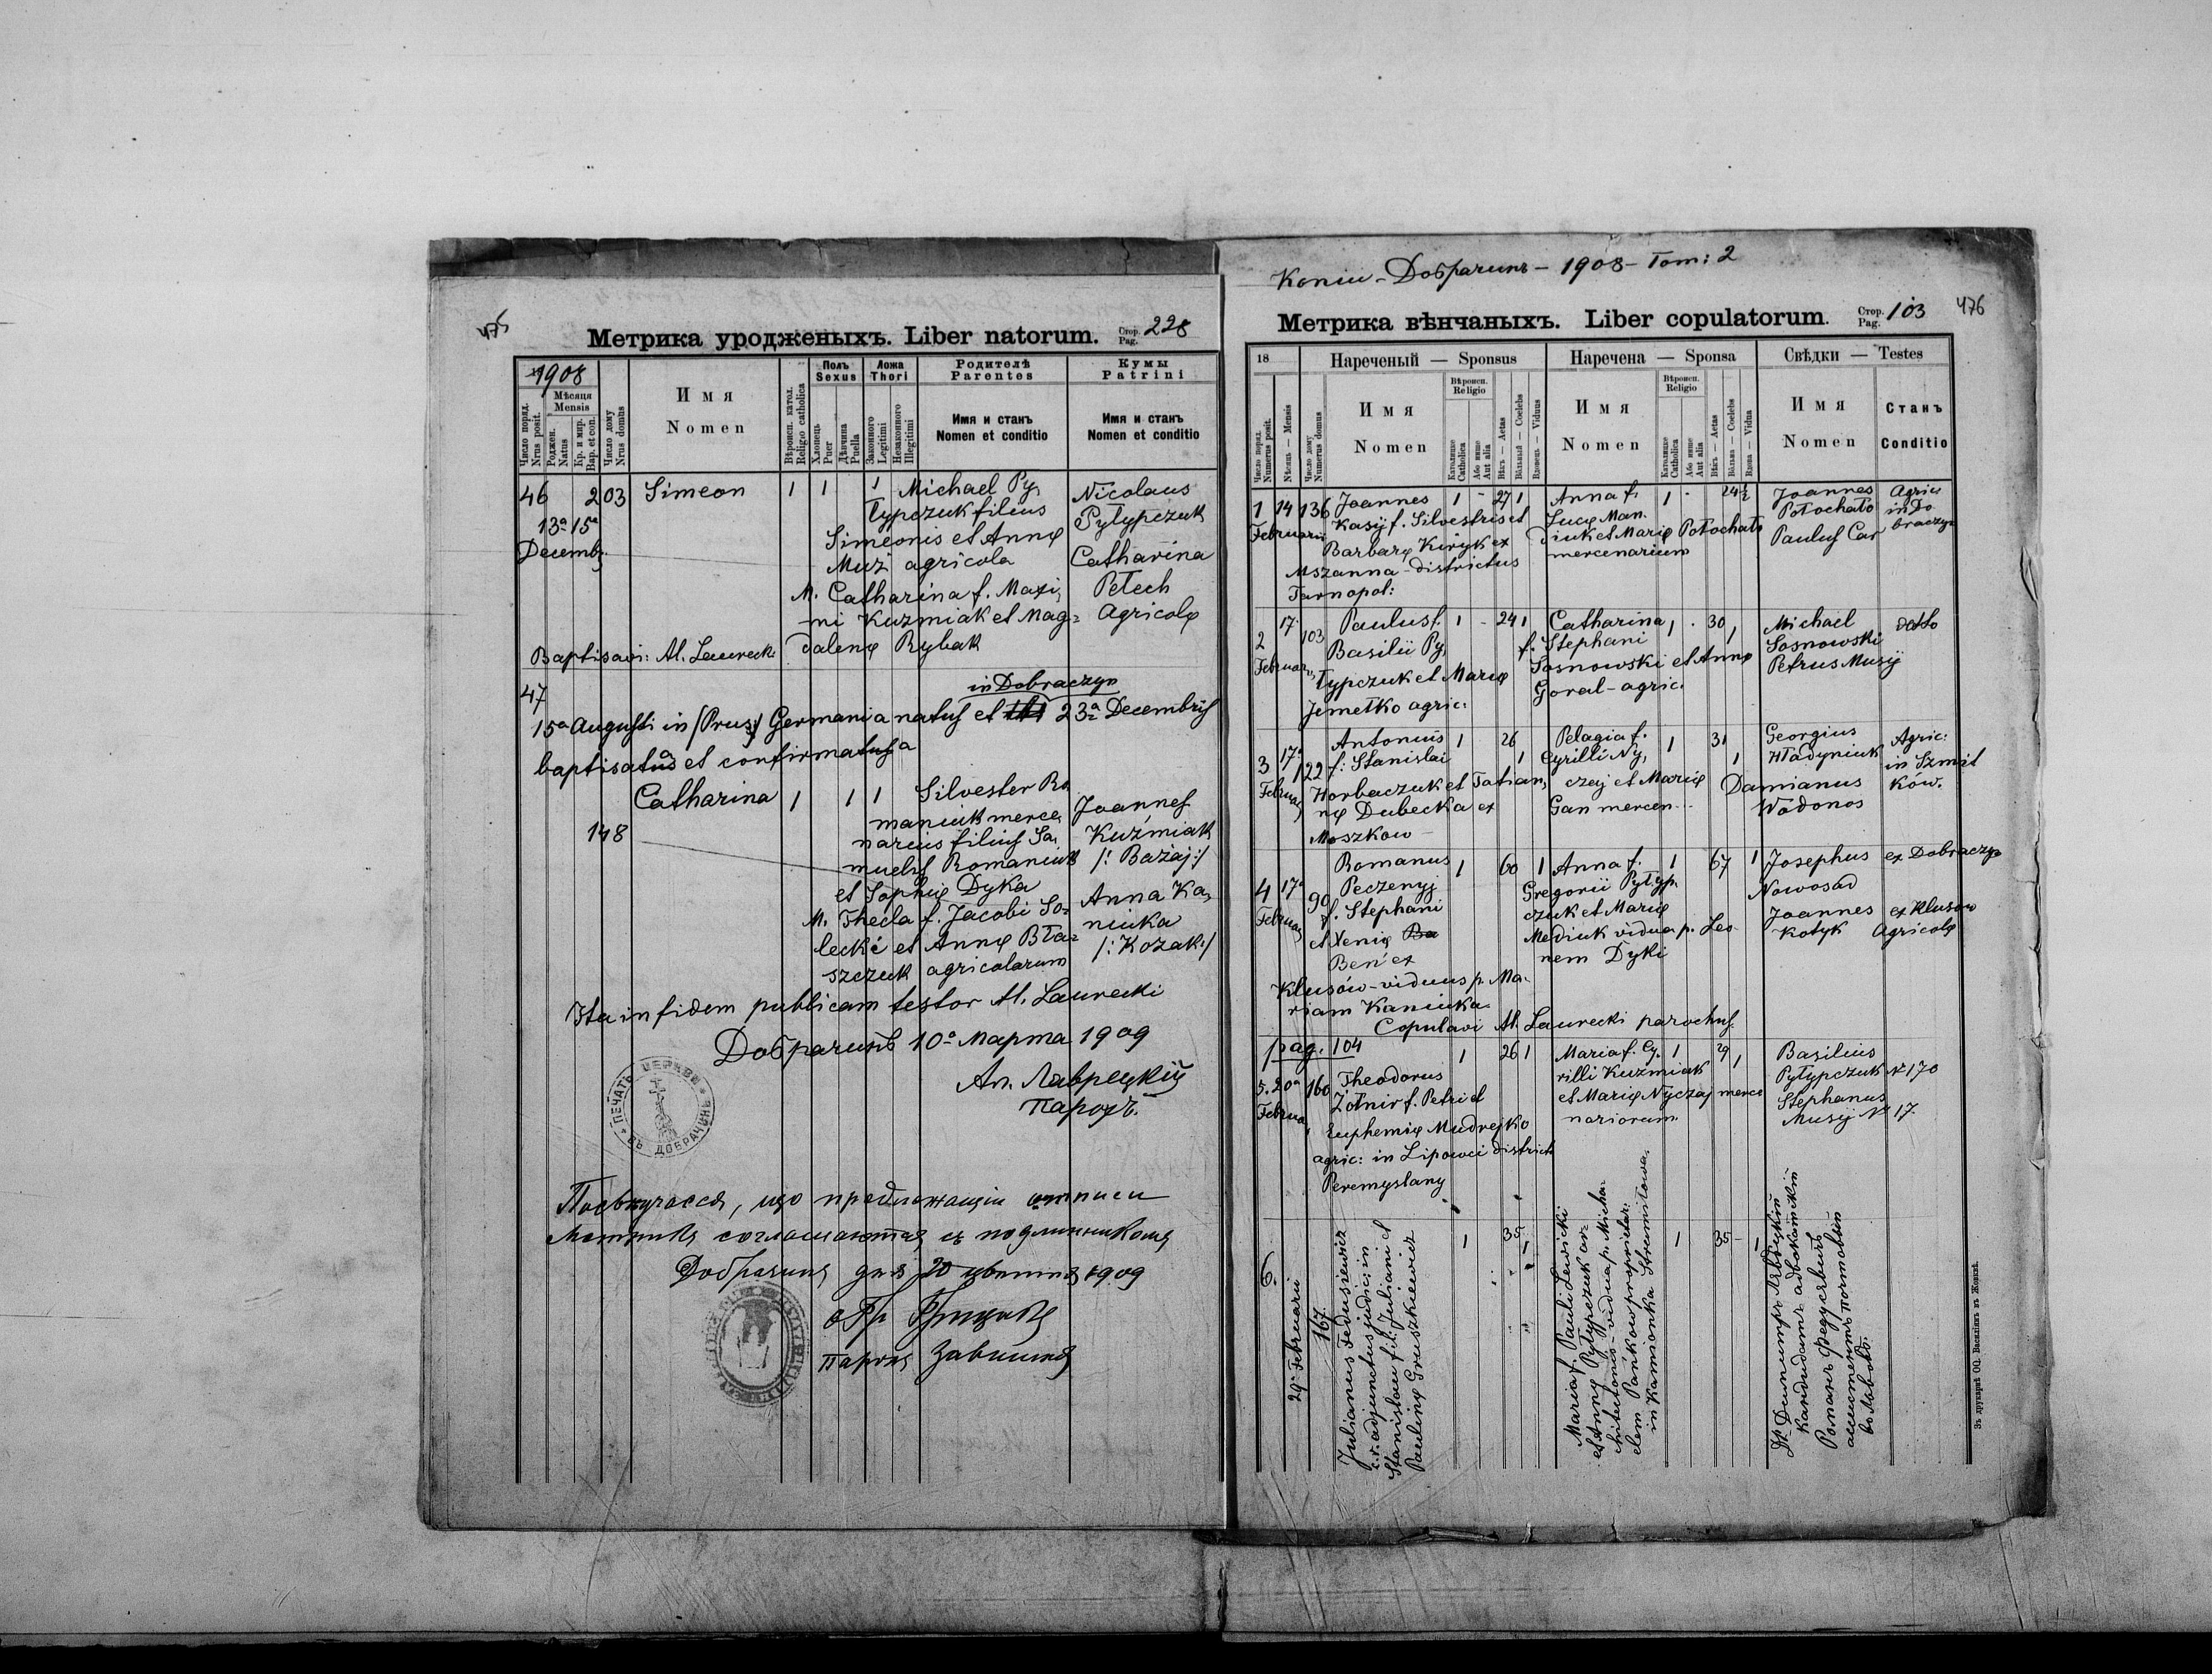 475
Метрика уродженыхъ. Liber natorum. Стор. Pag. 228
1908
Число поряд. Nrus posit.
Мѣсяця Mensis
Рожден. Natus
Кр. и мир. Bap. et con.
Число дому Nrus domus
Имя Nomen
Вѣроисп. катол. Religio catholica
Полъ Sexus
Хлопецъ Puer
Дѣвчина Puella
Ложа Thori
Законного Legitimi
Незаконного Illegitimi
Родителѣ Parentes
Имя и станъ Nomen et conditio
Кумы Patrini
Имя и станъ Nomen et conditio
46 203 Simeon 1 1 1 Michael Py,
typczuk filius
13ª 15ª
Decemb,
Simeonis et Annę
Muz agricola
M. Catharina f. Maxi,
mi Kuzmiak et Mag=
dalenę Rybak
Nicolaus
Pytypczuk
Catharina
Petech
Agricolę
Baptisavi: Al. Laurecki
47
in Dobraczyn
15ª Augusti in /Prus:/ Germania natus et 23ª Decembris
baptisatus et confirmatus a
Catharina 1 1 1 Silvester Ro
maniuk merce,
148
narius filius Sa,
muelis Romaniuk
et Sophię Dyka
M. Thecla f. Jacobi So=
lecki et Annę Bła=
szczuk agricolarum
Joannes
Kuźmiak
/: Bażaj :/
Anna Ka,
niuka
/: Kozak :/
Ita in fidem publicam testor Al. Laurecki
Добрачинъ 10ª Марта 1909
Ал. Лаврецкій
парохъ.
ПЕЧАТЬ ЦЕРКВИ ВЪ ДОБРАЧИНѢ
Посвѣдчаеся, що предлежащіи отписи
Метрикъ соглашаются съ подлинникомъ
Добрачинъ дня 20 цвѣтня 1909
парохъ
476
Добрачинъ - 1908 - Tom: 2
Метрика вѣнчаныхъ. Liber copulatorum. Стор. Pag. 103
18
Число поряд. Numerus posit.
Мѣсяць — Mensis
Число дому Numerus domus
Нареченый — Sponsus
Имя Nomen
Вѣроисп. Religio
Католицке Catholica
Або инше Aut alia
Вѣкъ — Aetas
Вольный — Coelebs
Вдовець — Viduus
Наречена — Sponsa
Имя Nomen
Вѣроисп. Religio
Католицке Catholica
Або инше Aut alia
Вѣкъ — Aetas
Вольна — Coelebs
Вдова — Vidua
Свѣдки — Testes
Имя Nomen
Станъ Conditio
1 14 136 Joannes 1 - 27 1
Februarii Kasij f. Silvestris et
Barbarę Kiryk ex
Mszanna districtus
Tarnopol:
Anna f. 1 - 24½
Lucę Man.
Diuk et Marię Potochato
mercenarium
Joannes
Potochato
Paulus Car
Agric
in Do
braczyn
2 17. 103 Paulus f. 1 - 24 1
Februar, Basilii Py,
typczuk et Marię
Jemetko agric:
Catharina 1 . 30 1
f. Stephani
Sosnowski et Annę
Goral - agric.
Michael
Sosnowski
Petrus Musij
detto
3 17ª 122 Antonius 1 26 1
Februa, f: Stanislai
Horbaczuk et Tatian,
nę Dubecka ex
Moszkow
Pelagia f. 1 31 1
Cyrilli Ny,
czaj et Marię
Gan mercen.
Georgius
Hładyniuk
Damianus
Wodonos
Agric:
in Szmit
ków.
4 17ª 90 Romanus 1 60 1
Februa, Peczenyj
f. Stephani
et Xenię
Beń ex
Klusów - viduus p. Ma.
riam Kaniuka
Anna f. 1 67 1
Gregorii Pytyp.
czuk et Marię
Mediuk vidua p. Leo
nem Dyki
Josephus
Nowosad
Joannes
Kotyk
ex Dobraczyn
ex Klusow
Agricolę
Copulavi Al. Laurecki parochus.
pag. 104
5. 20ª 160 Theodorus 1 26 1
Februa, Żotnir f. Petri et
Euphemię Mudrejko
agric: in Lipowci district
Peremyslany
Maria f. Cy. 1 29 1
rilli Kuzmiak
et Marię Nyczaj merce
nariorum
Basilius
Pytypczuk Nº 170
Stephanus
Musij Nº 17
6. 29ª Februarii 167.
Julianus Fedusiewicz
c. r. adjunctus judic: in
Stanislau fil: Juliani et
Paulinę Gruszkiewicz
1 35 1
Maria f. Pauli Lewicki
et Annę Pytypczuk ar
chitectonis - vidua p. Micha.
elem Pańkow proprietar:
in Kamionka Strumilowa.
1 35 1
Др. Димитръ Лѣвѣцкій
кандидатъ адвокатскій
Романъ Федусѣвичъ
ассистентъ почтовый
во Львовѣ.
Зъ друкарнѣ ОО. Василіянъ въ Жовквѣ.